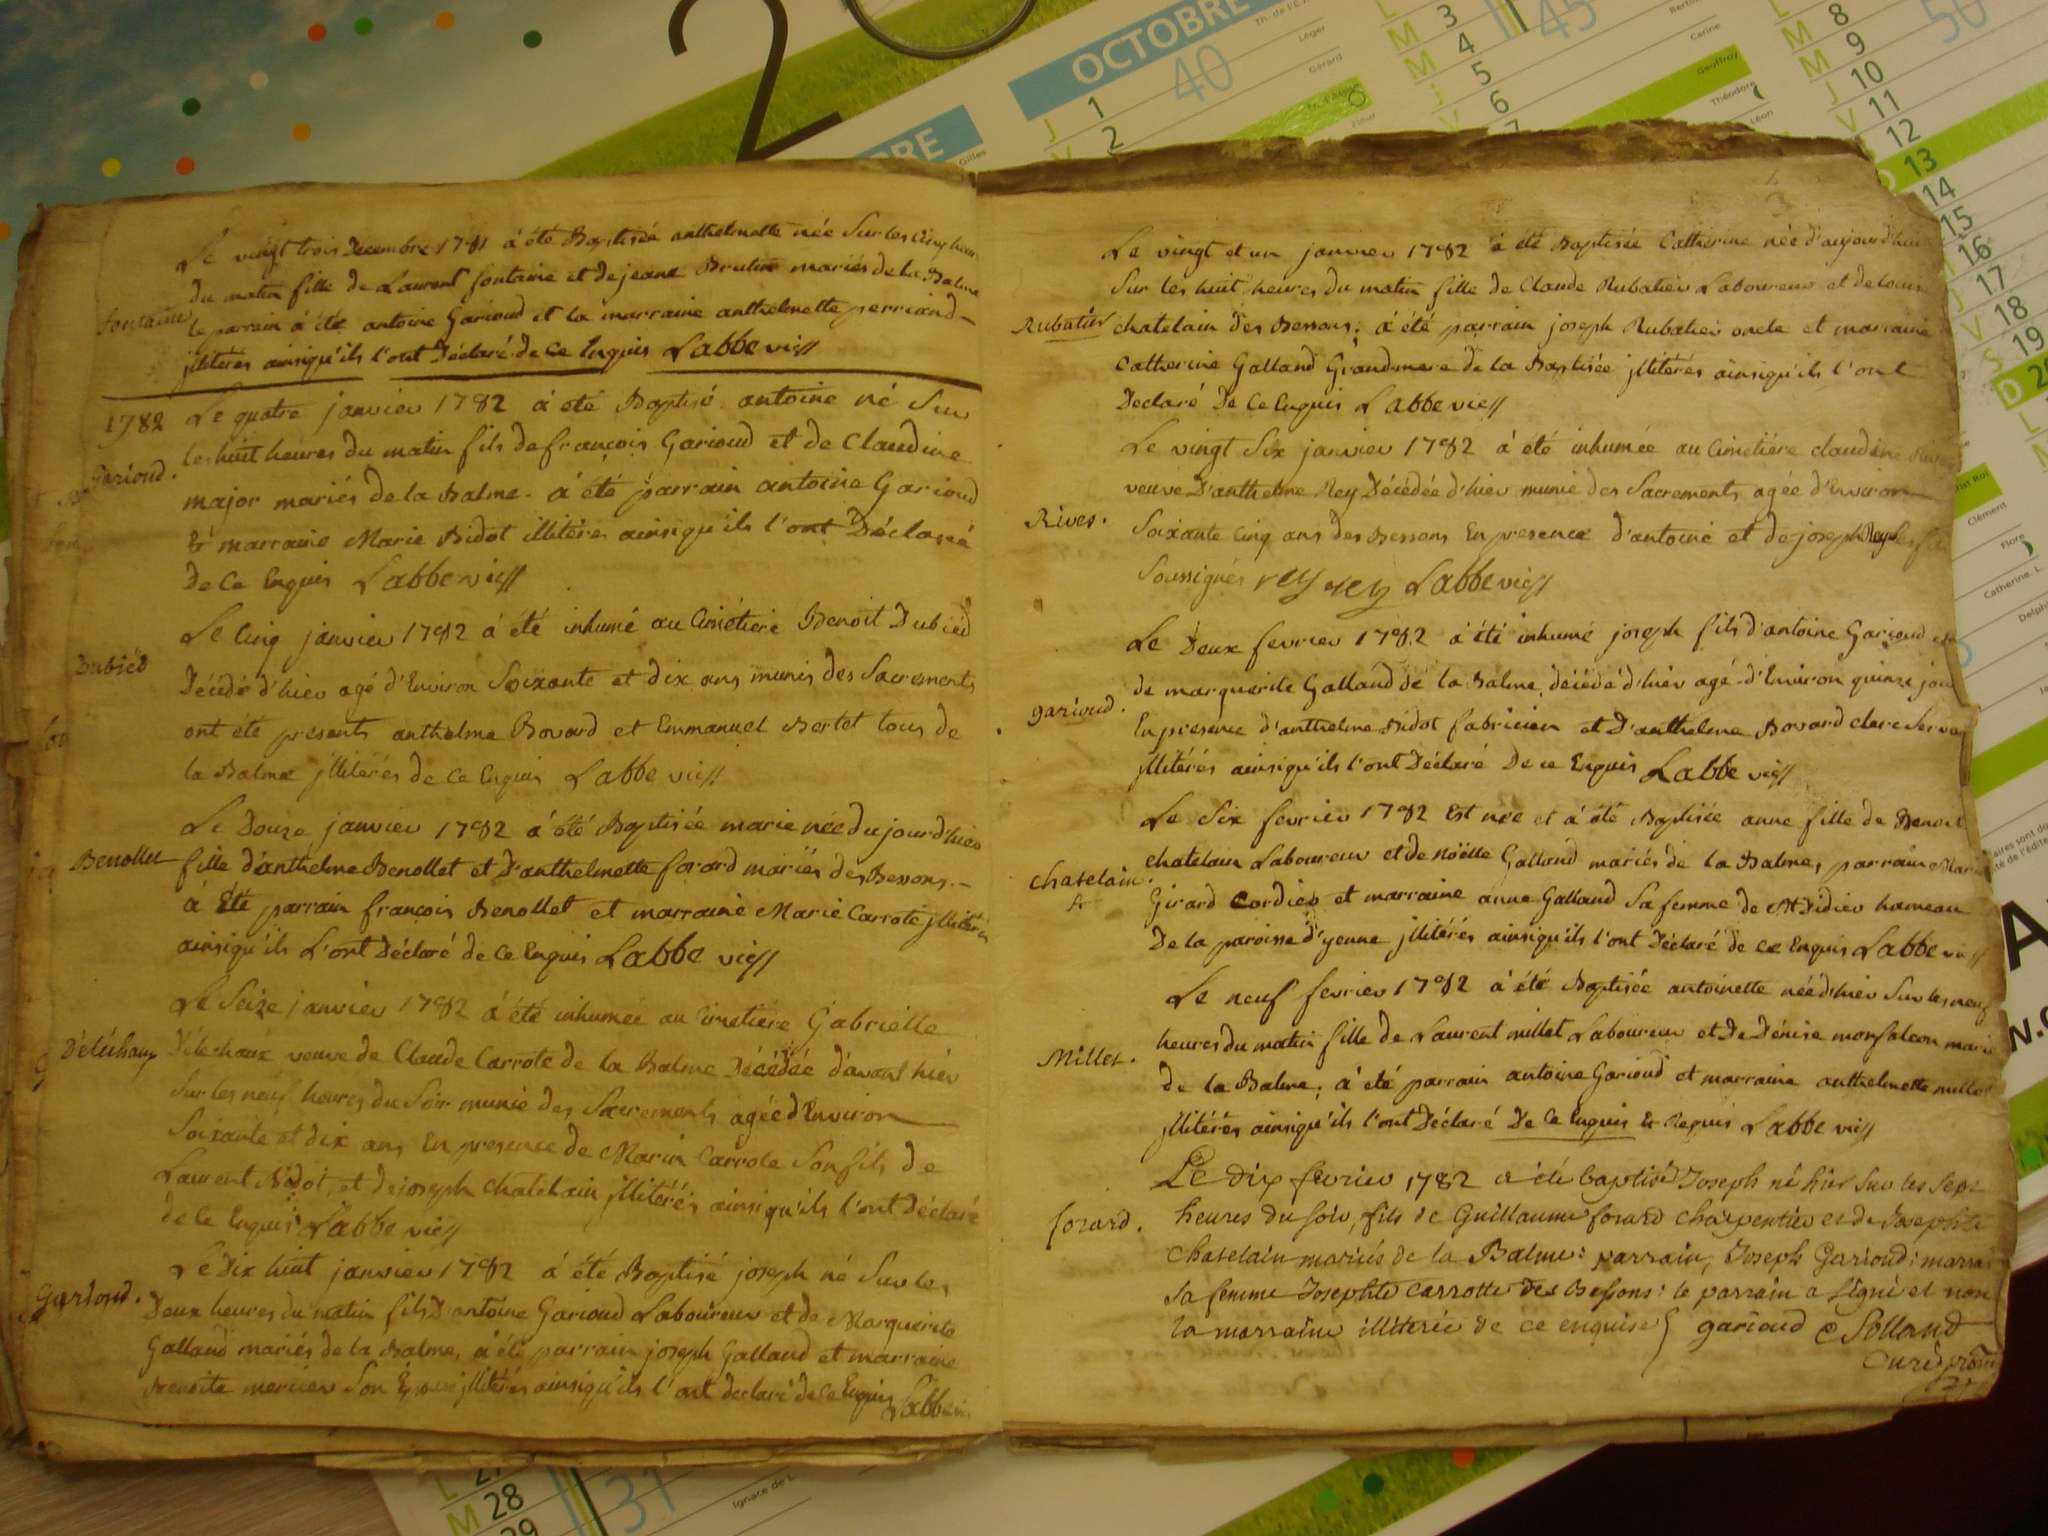 Le vingt trois Decembre 1781 à été Baptisée anthelmette née Sur les Cinq heures
du matin fille de Laurent fontaine et de jeane Brutin mariés de la Balme
fontaine
le parrain à été antoine Garioud et la marraine anthelmette perriand
jllitérés ainsiqu'ils l'ont Déclaré de Ce Enquis Labbe vic//
1782
Le quatre janvier 1782 à été Baptisé antoine né Sur
les huit heures du matin fils de françois Garioud et de Claudine
Garioud.
major mariés de la Balme. à été parrain antoine Garioud
& marraine Marie Bidot illitérés ainsiqu'ils l'ont Déclaré
de Ce Enquis Labbe vic//
Le Cinq janvier 1782 à été inhumé au Cimétiere Benoit Dubiéd
Dubiéd
Décédé d'hier agé d'Environ Soixante et dix ans munis des Sacrements
ont été presents anthelme Bovard et Emmanuel Bertet tous de
la Balme jllitérés de Ce Enquis Labbe vic//
Le Douze janvier 1782 à été Baptisée marie née du jourd'hier
Benollet
fille d'anthelme Benollet et D'anthelmette forard mariés des Bessons.-
à Eté parrain françois Benollet et marraine Marie Carrote jllitérés
ainsiqu'ils L'ont Déclaré de Ce Enquis Labbe vic//
Le Seize janvier 1782 à été inhumée au Cimetiere Gabrielle
Déléchaux
Déléchaux veuve de Claude Carrote de la Balme Décédée d'avant hier
Sur les neuf heures du Soir munie des Sacrements agée d'Environ
Soixante et dix ans En presence de Marin Carrote Son fils de
Laurent Nidot, et de joseph Chatelain jllitérés ainsiqu'ils l'ont Déclaré
de Ce Enquis Labbe vic//
Le Dix huit janvier 1782 à été Baptisé joseph né Sur les
Garioud.
Deux heures du matin fils D'antoine Garioud Laboureur et de Marguerite
Galland mariés de la Balme, à été parrain joseph Galland et marraine
Benoite mercier Son Epouse jllitérés ainsiqu'ils l'ont declaré de Ce Enquis
Labbe vic
Le vingt et un janvier 1782 à été Baptisée Catherine née d'aujourd'hui
Sur les huit heures du matin fille de Claude Rubatier Laboureur et de Louise
Rubatier
chatelain des Bessons; à été parrain joseph Rubatier oncle et marraine
Catherine Galland Grandmere de la Baptisée jllitérés ainsiqu'ils l'ont
Déclaré De Ce Enquis Labbe vic//
Le vingt Six janvier 1782 à été inhumée au Cimetiére claudine Rives
veuve D'anthelme Rey Décédée d'hier munie des Sacrements agée d'Environ
Rives.
Soixante Cinq ans des Bessons En presence d'antoine et de joseph Rey
Soussignés rey rey Labbe vic//
Le Deux fevrier 1782 à été inhumé joseph fils d'antoine Garioud et
de marguerite Galland de la Balme décédé d'hier agé d'Environ quinze jours
garioud.
En presence d'anthelme Bidot fabricien et D'anthelme Bovard clerc Servant
jllitérés ainsiqu'ils l'ont Déclaré De ce Enquis Labbe vic//
Le Six fevrier 1782 Est née et à été Baptisée anne fille de Benoit
chatelain
chatelain Laboureur et de Noëlle Galland mariés de la Balme, parrain Marin
Girard Cordier et marraine anne Galland Sa femme de St Didier hameau
De la paroisse d'yenne jllitérés ainsiqu'ils l'ont Déclaré de Ce Enquis Labbe vic//
Le neuf fevrier 1782 à été Baptisée antoinette née d'hier Sur les neuf
heures du matin fille de Laurent millet Laboureur et De Dénise monfalcon mariés
Millet.
de la Balme; à été parrain antoine Garioud et marraine anthelmette millet
jllitérés ainsiqu'ils l'ont Déclaré De Ce Enquis & Requis Labbe vic//
Le dix fevrier 1782 a été baptisé Joseph né hier sur les sept
forard.
heures du soir, fils de Guillaume forard charpentier et de Josephte
Chatelain mariés de la Balme: parrain, Joseph Garioud: marraine
sa femme Josephte Carrotte des Bessons: le parrain a signé et non
la marraine illiterée de ce enquise garioud Solland
Curé
OCTOBRE
40
45
50
1
2
3
4
5
6
7
8
9
10
11
12
13
14
15
16
17
18
19
Léger
Gérard
Carine
Geoffroy
Théodore
Léon
Clément
Flore
Catherine. L.
28
29
31